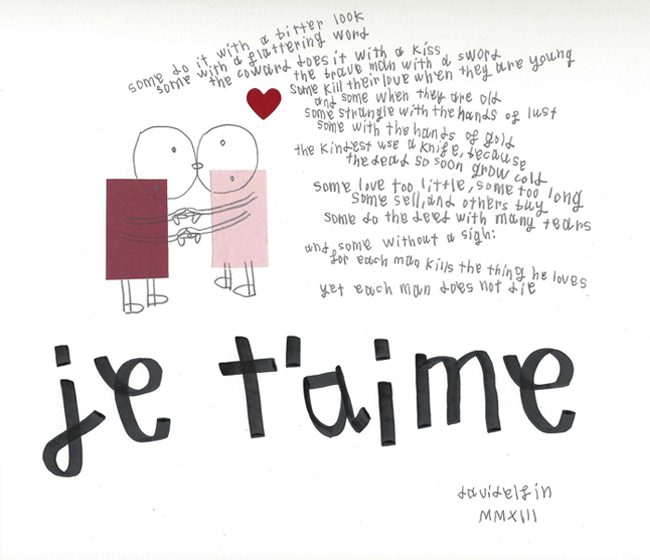 some do it with a bitter look
some with a flattering word
the coward does it with a kiss
the brave man with a sword
some kill their love when they are young
and some when they are old
some strangle with the hands of lust
some with the hands of gold
the kindest use a knife, because
the dead so soon grow cold
some love too little, some too long
some sell, and others buy
some do the deed with many tears
and some without a sigh:
for each man kills the thing he loves
yet each man does not die
je t'aime
davidelfin
MMXIII